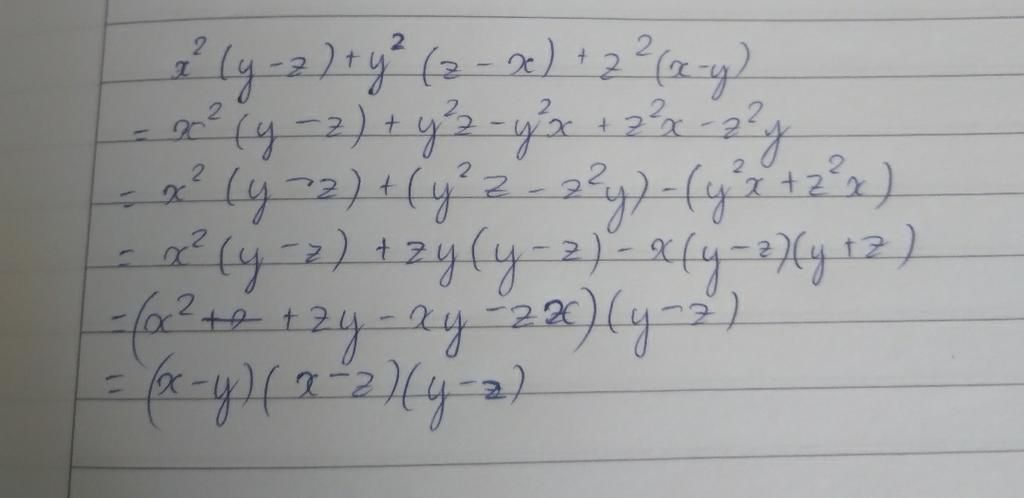 x²(y-z)+y²(z-x)+z²(x-y)
= x²(y-z)+y²z-y²x+z²x-z²y
= x²(y-z)+(y²z-z²y)-(y²x+z²x)
= x²(y-z)+zy(y-z)-x(y-z)(y+z)
=(x²+zy-xy-zx)(y-z)
= (x-y)(x-z)(y-z)